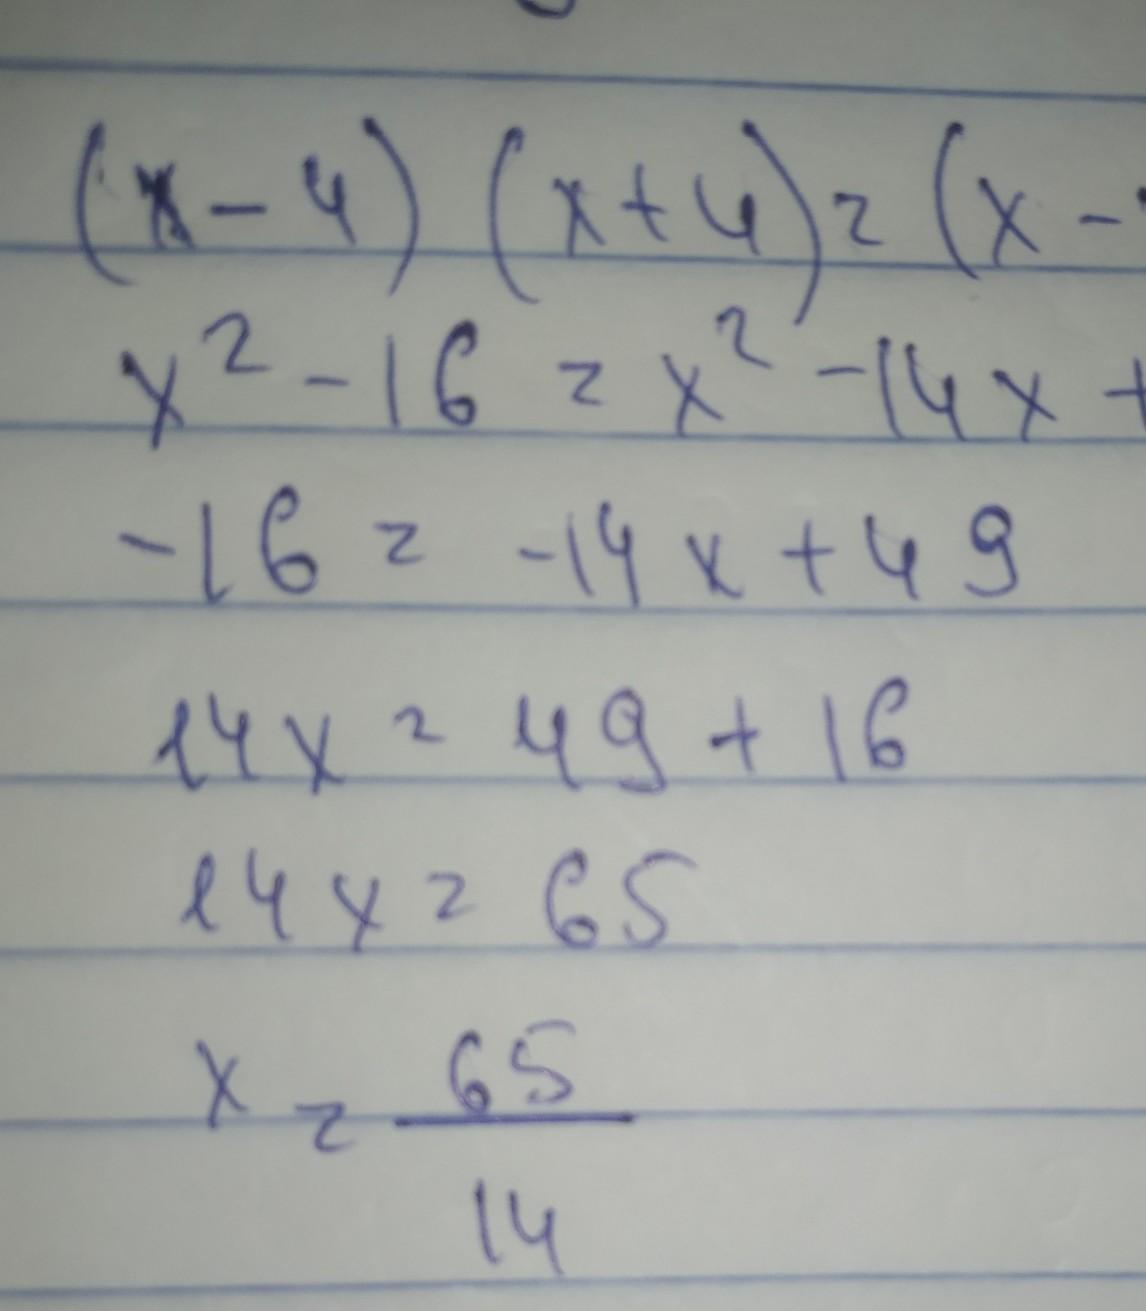 (x-4) (x+4) = (x-
x² -16 = x² -14x +
-16 = -14x + 49
14x = 49 + 16
14x = 65
x = 65/14